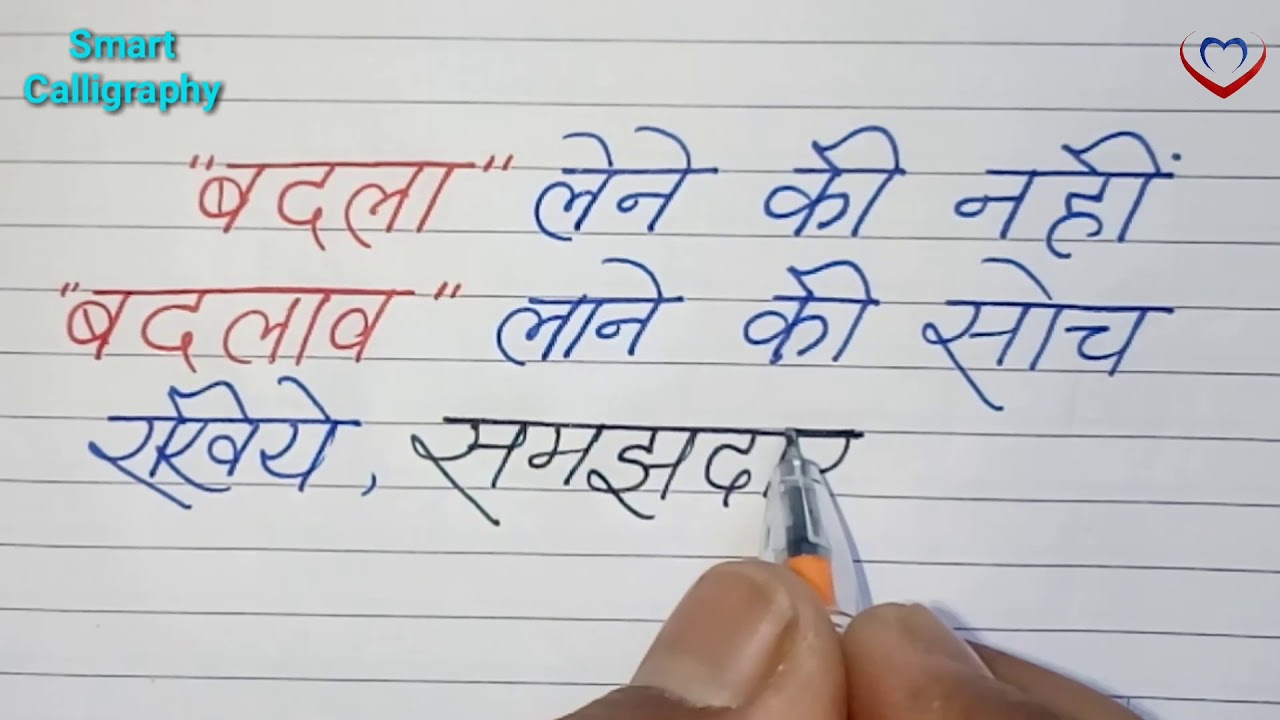 Smart
Calligraphy
"बदला" लेने की नहीं
"बदलाव" लाने की सोच
रखिये, समझदार